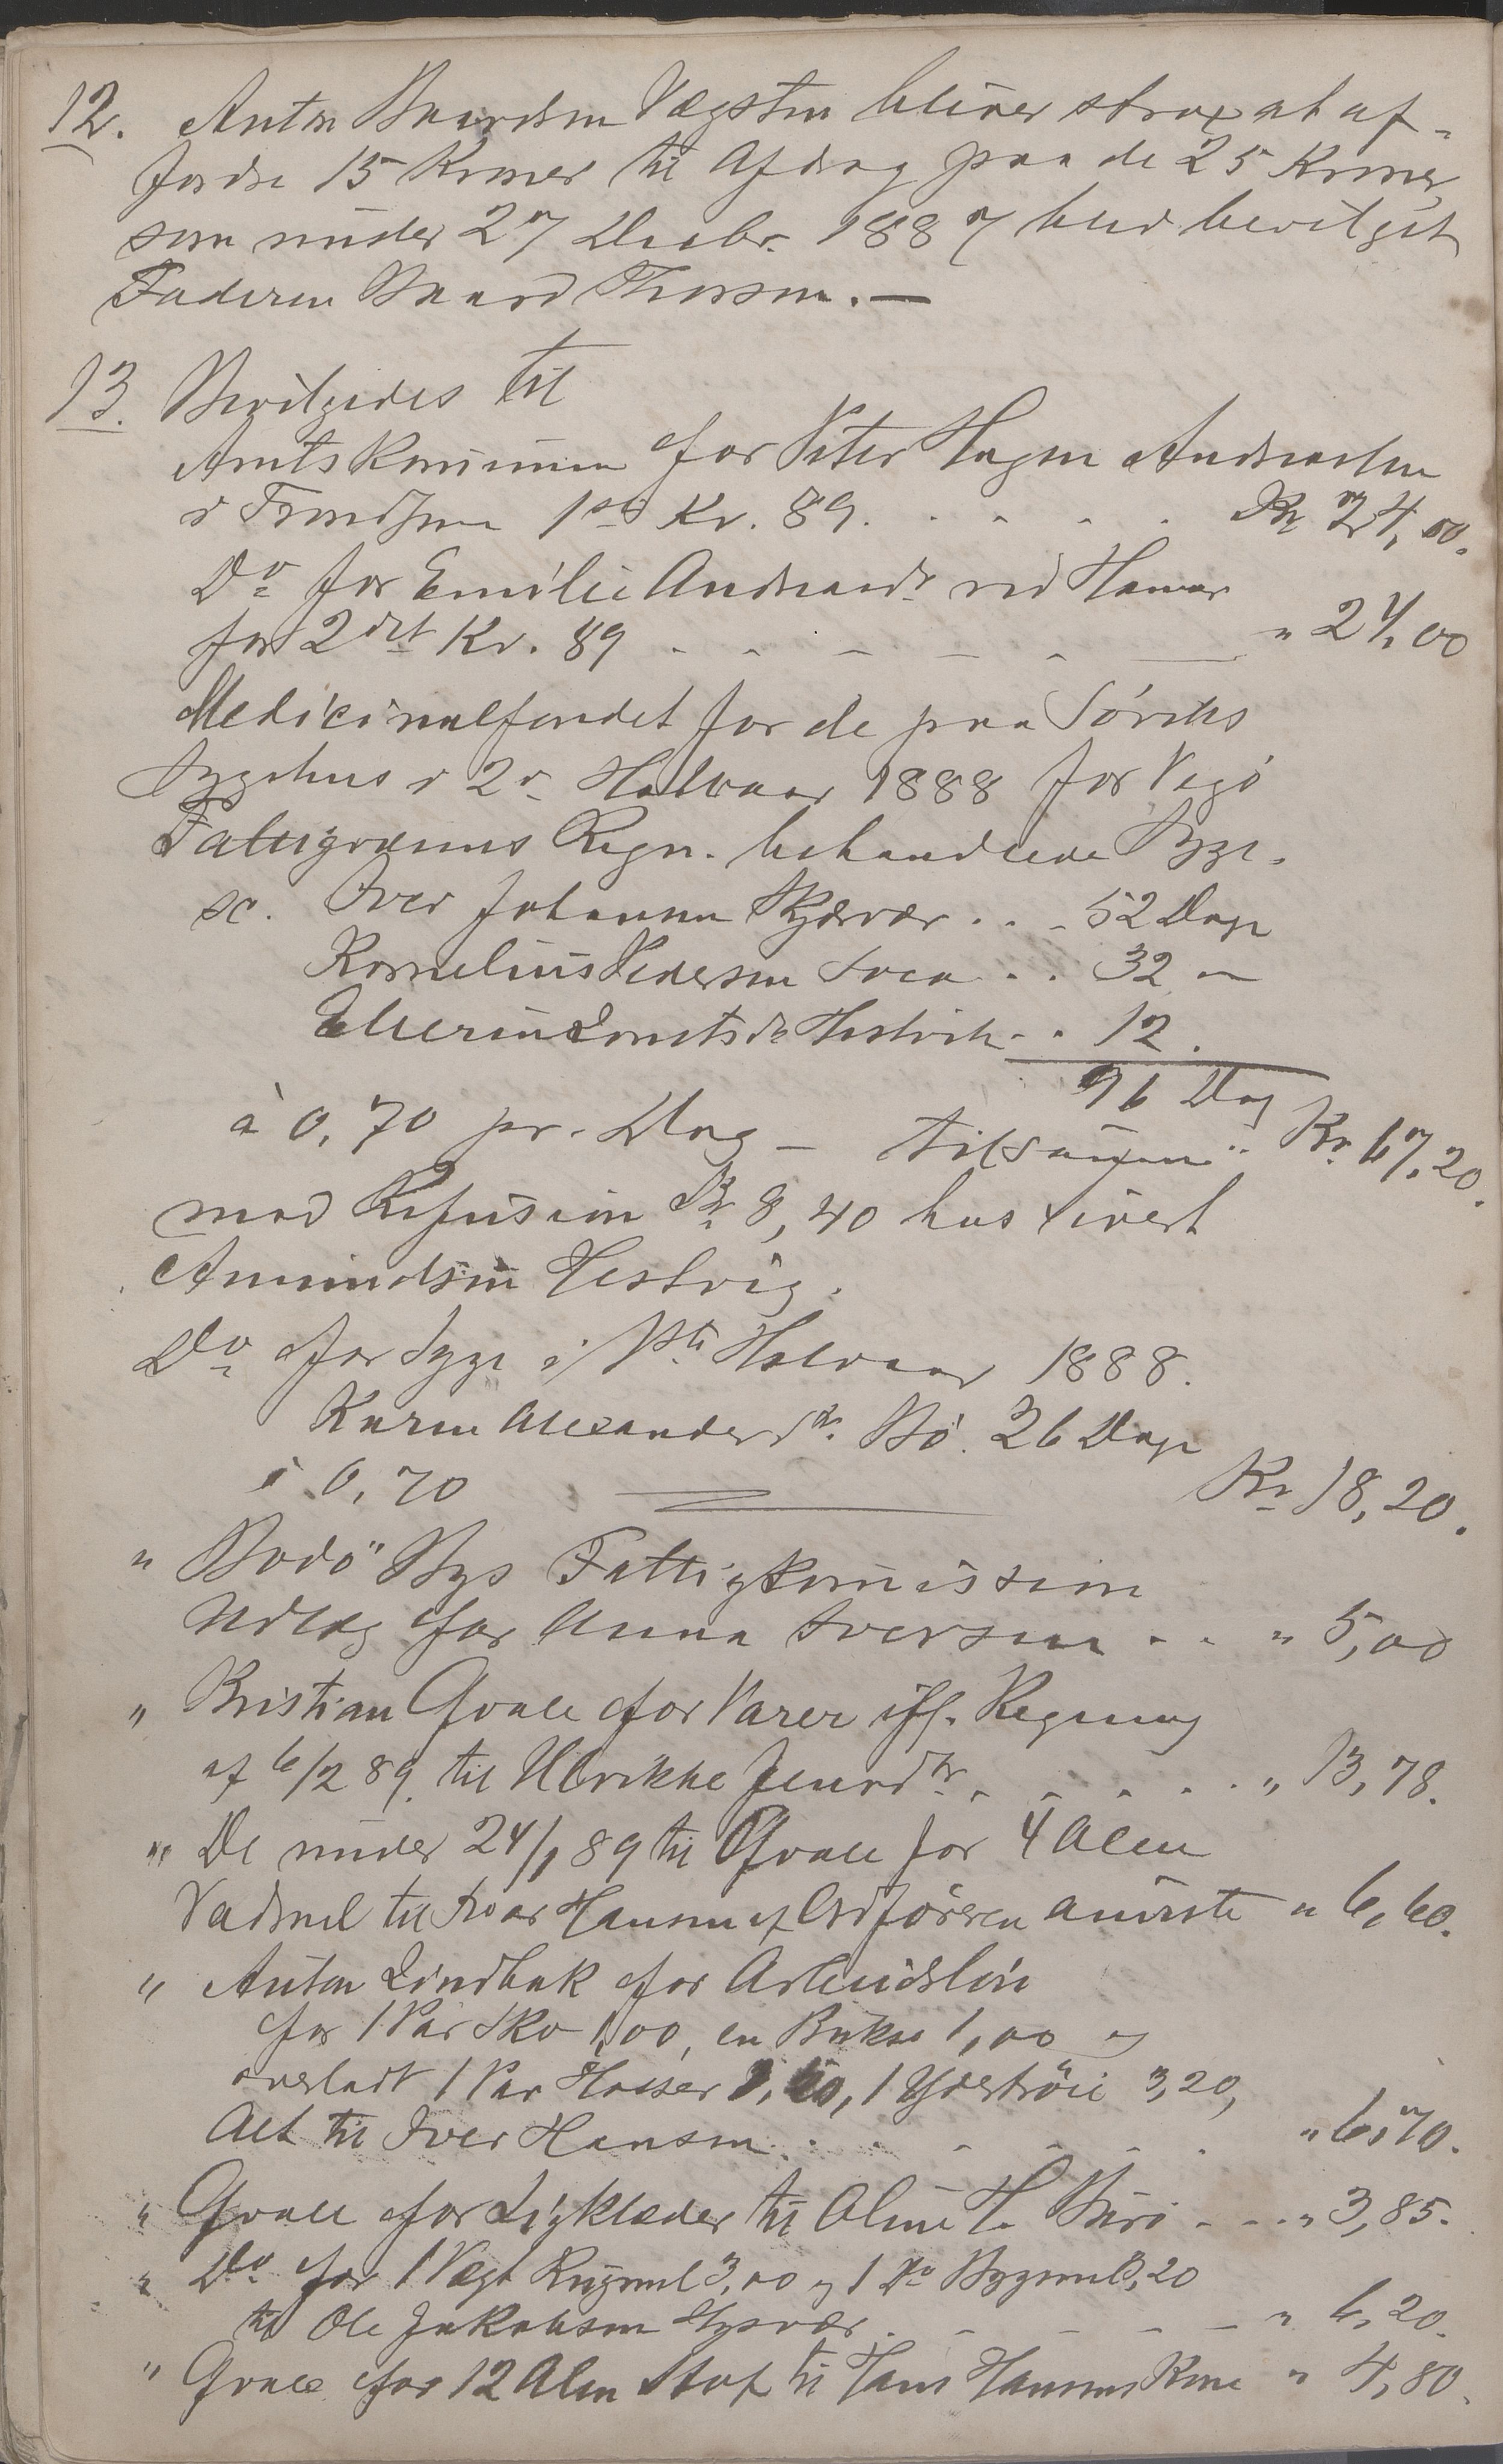 12. Anton Baardsen Vægsten bliver strax at af-
fordre 15 Kroner til Afdrag paa de 25 Kroner,
som under 27 Decbr. 1887 blev bevilget
Faderen Baard Thorsen. —
13. Bevilgedes til
Amtskommunen for Peter Hagen Andreasen
i Trondhjem 1ste Kv. 89. . . . . Kr 24,00.
Do for Emilie Andreasdr ved Hamar
for 2det Kv. 89 - - - - - " 24,00
Medicinalfondet for de paa Søviks
Sygehus i 2. Halvaar 1888 for Vegø
Fattigvæsens Regn. behandlede Syge.
sc. Iver Johansen Skjærvær . . . 52 Dage
Kornelius Pedersen Svea . . 32 "
Elverin Sivertsdr Hestvik - . 12.
96 Dag
à 0,70 pr. Dag — tilsammen .. Kr. 67,20.
mod Refusion Kr 8,40 hos Sivert
Amundsen Hestvig.
Do for Syge i 1ste Halvaar 1888.
Karen Alexandersdr. Bø. 26 Dage
à 0,70 Kr 18,20.
" Bodø Bys Fattigkomission
Udlæg for Anna Iversen . . " 5,00
" Kristian Qvale for Varer iflg. Regning
af 6/2 89. til Ulrikke Jensdtr. - - - . . . " 13,78.
" De under 24/1 89 til Qvale for 4 Alen
Vadmel til Ivar Hansen af Ordføreren anviste " 6,60.
" Anton Lindbak for Arbeidsløn
for 1 Par Sko 1,00, en Bukse 1,00 og
overladt 1 Par Hoser 1,50, 1 Ydertrøie 3,20,
Alt til Iver Hansen . . . - - - . " 6,70.
" Qvale for Ligklæder til Oline H. - - . . " 3,85.
" Do for 1 Vægt Rugmel 3,00 og 1 Do Bygmel 3,20
til Ole Jakobsen . - - - - - " 6,20.
" Qvale for 12 Alen Stof til Hans Hansens Kone " 4,80.